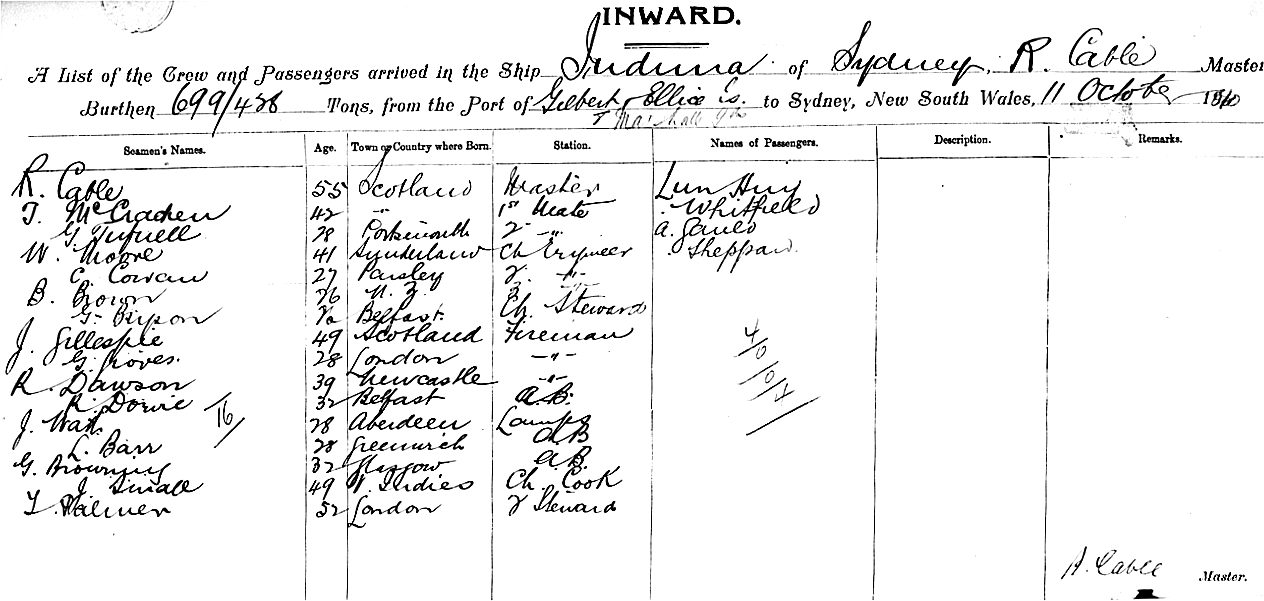 INWARD.
A List of the Crew and Passengers arrived in the Ship Induna of Sydney, R. Cable Master
Burthen 699/428 Tons, from the Port of Gilbert, Ellice Is. to Sydney, New South Wales, 11 October
Marshall
Seamen's Names. Age. Town or Country where Born. Station. Names of Passengers. Description. Remarks.
R. Cable 55 Scotland Master Lun Huy
T. McCracken 42 -"- 1st Mate Whitfield
G. Tufnell 28 Portsmouth 2 -"- A.
W. Moore 41 Sunderland Ch Engineer Sheppard
C. Cowan 27 Paisley 2. -"-
B. Brown 26 N. Z. 3 -"-
G. Belfast. Ch. Steward
J. Gillespie 49 Scotland Fireman
G. Groves. 28 London -"-
R. Dawson 39 Newcastle -"-
R. Dowie 32 Belfast A.B.
J. Watt 28 Aberdeen Lamps
16/
L. Barr 28 Greenwich AB
G. Browning 32 Glasgow A.B.
J. Small 49 W. Indies Ch. Cook
T. Palmer 52 London 2 Steward
R. Cable Master.